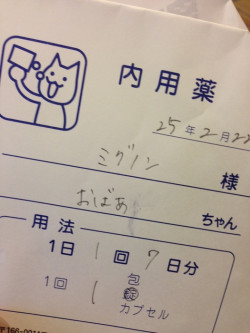 内用薬
25年2月22
ミグノン 様
おばあ ちゃん
用法
1日 1 回 7 日分
包
1回 1 錠
カプセル
〒166-001